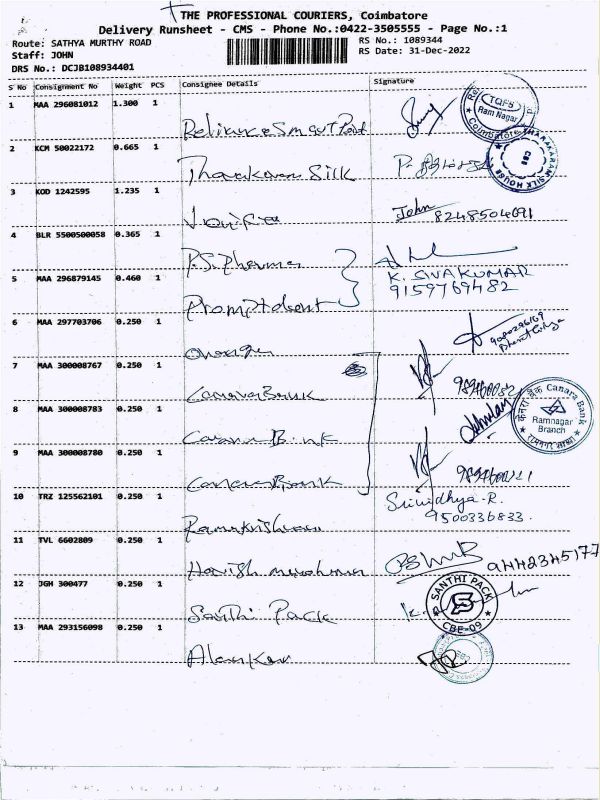 THE PROFESSIONAL COURIERS, Coimbatore
Delivery Runsheet - CMS - Phone No.:0422-3505555 - Page No.:1
Route: SATHYA MURTHY ROAD
RS No.: 1089344
Staff: JOHN
RS Date: 31-Dec-2022
DRS No.: DCJB108934401
S No Consignment No Weight PCS Consignee Details Signature
1 MAA 296081012 1.300 1
TQFS
Ram Nagar
Coimbatore
2 KCM 50022172 0.665 1
Silk
THARAKARAM SILK HOUSE
CBE
3 KOD 1242595 1.235 1
John
8248504691
4 BLR 5500500058 0.365 1
P.S. Pharma
5 MAA 296879145 0.460 1
K. SIVAKUMAR
9159769482
Promptdent
6 MAA 297703706 0.250 1
7 MAA 300008767 0.250 1
Canara Bank
8 MAA 300008783 0.250 1
Canara Bank
केनरा बैंक Canara Bank
Ramnagar
Branch
रामनगर शाखा
9 MAA 300008780 0.250 1
Canara Bank
10 TRZ 125562101 0.250 1
Srividhya.R.
9500336833.
Ramakrishnan
11 TVL 6602809 0.250 1
9442345177
Harish
12 JGH 300477 0.250 1
Santhi Pack
SANTHI PACK
CBE-09
13 MAA 293156098 0.250 1